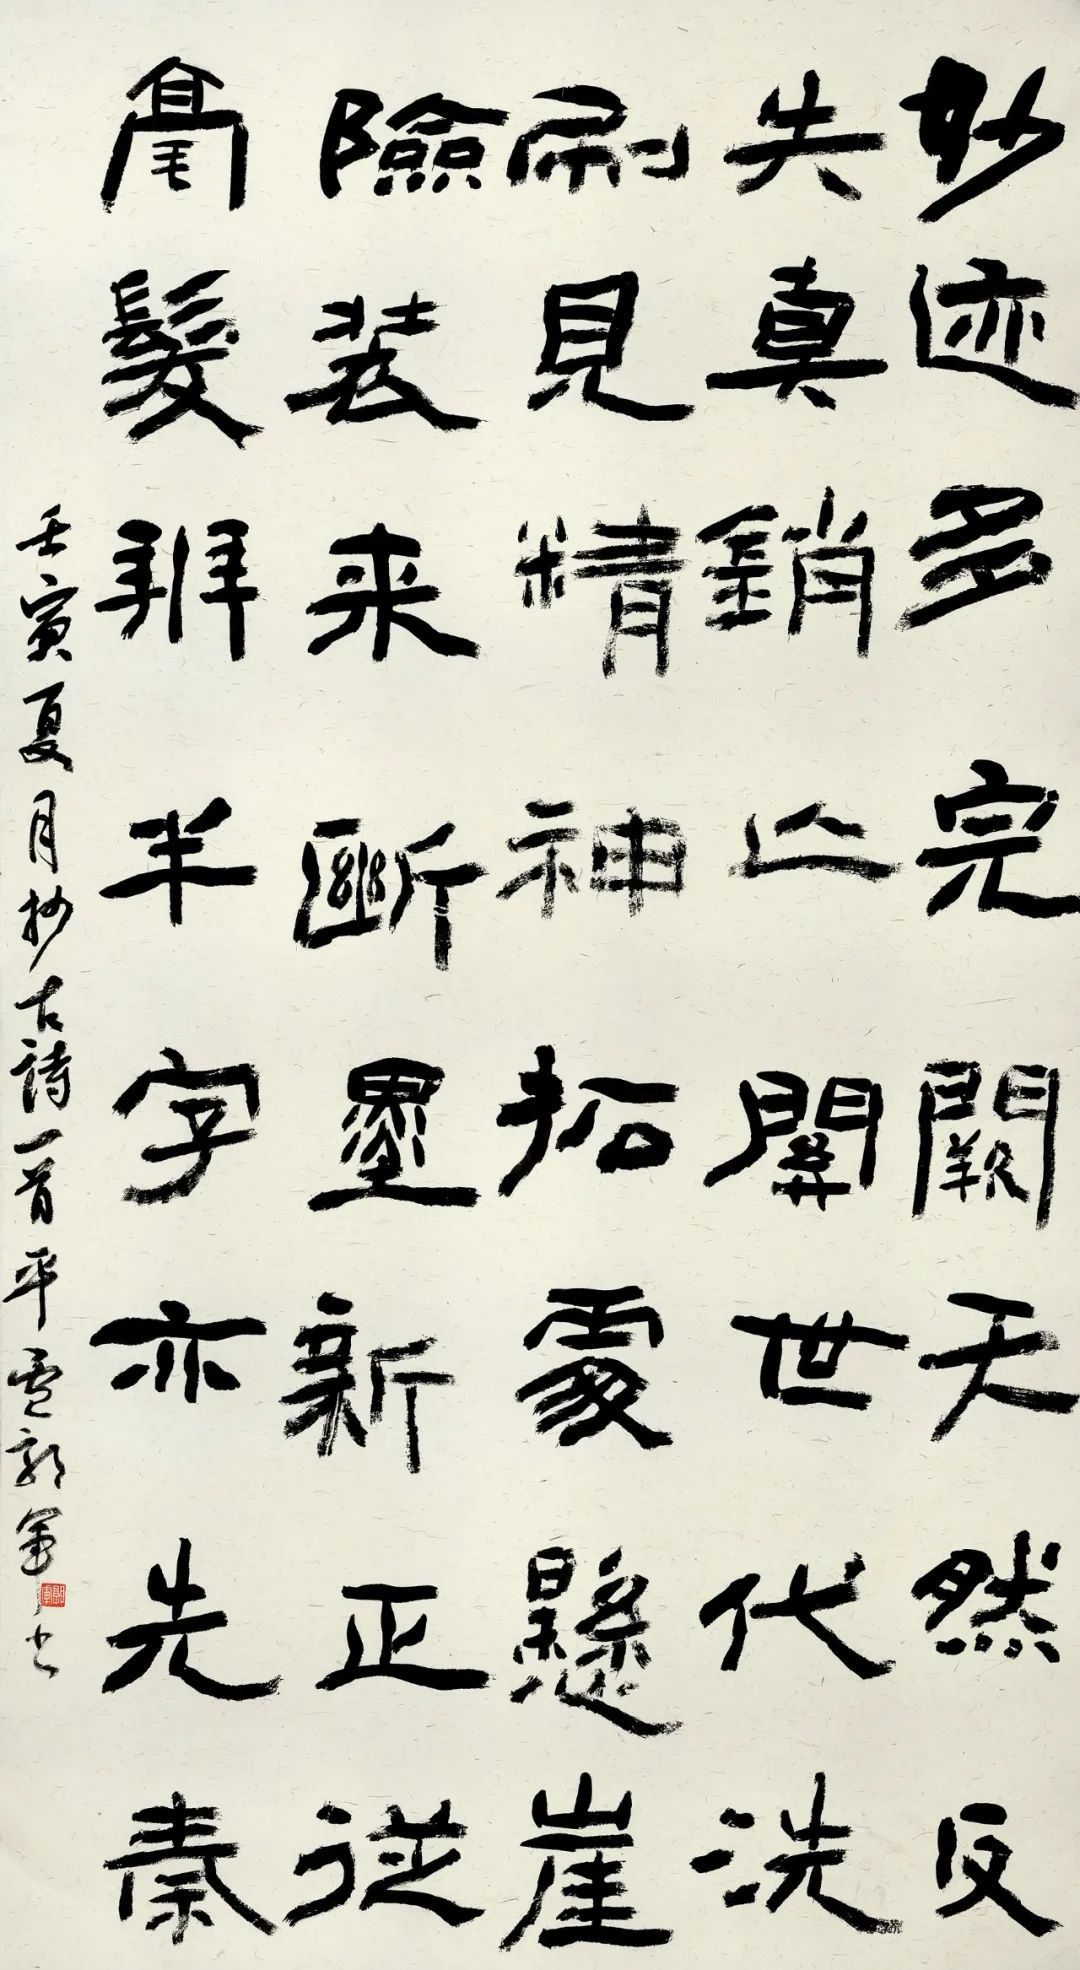 妙迹多完闕天然反
失真銷亡關世代洗
刷見精神拓處懸崖
險装来斷墨新正從
毫髮辨半字亦先秦
壬寅夏月抄古詩一首平郭軍书